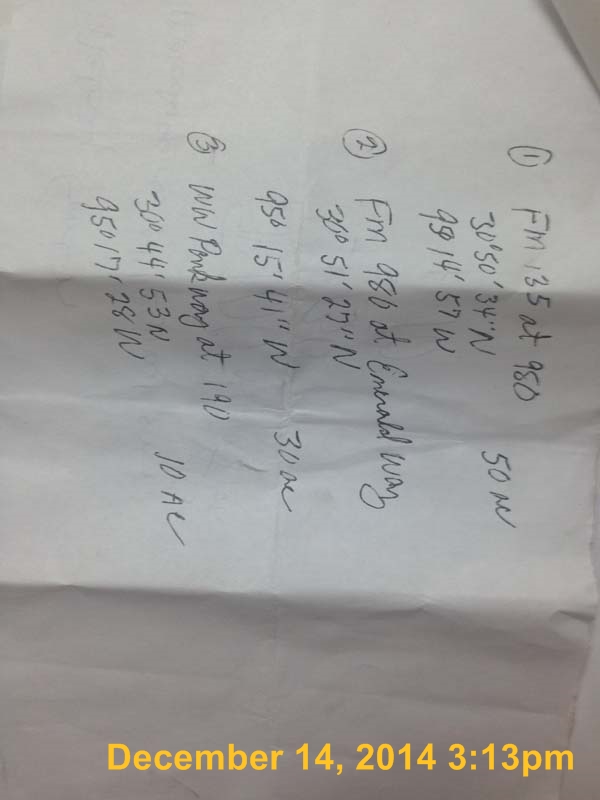 ① FM 135 at 980
30° 50' 34" N
95° 14' 57" W
50 ac
② FM 980 at Emerald Way
30° 51' 27" N
95° 15' 41" W
30 ac
③ WW Parkway at 190
30° 44' 53 N
95° 17' 28" W
10 AC
December 14, 2014 3:13pm